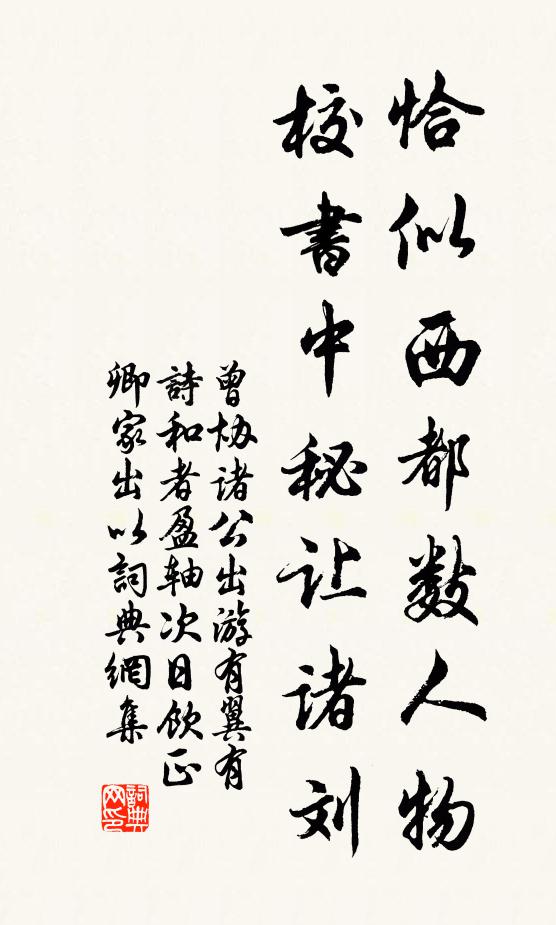 恰似西都数人物
校書中秘让诸刘
曾协诸公出游有翼有
詩和者盈轴次日飲正
卿家出以詞典網集
詞典
网印